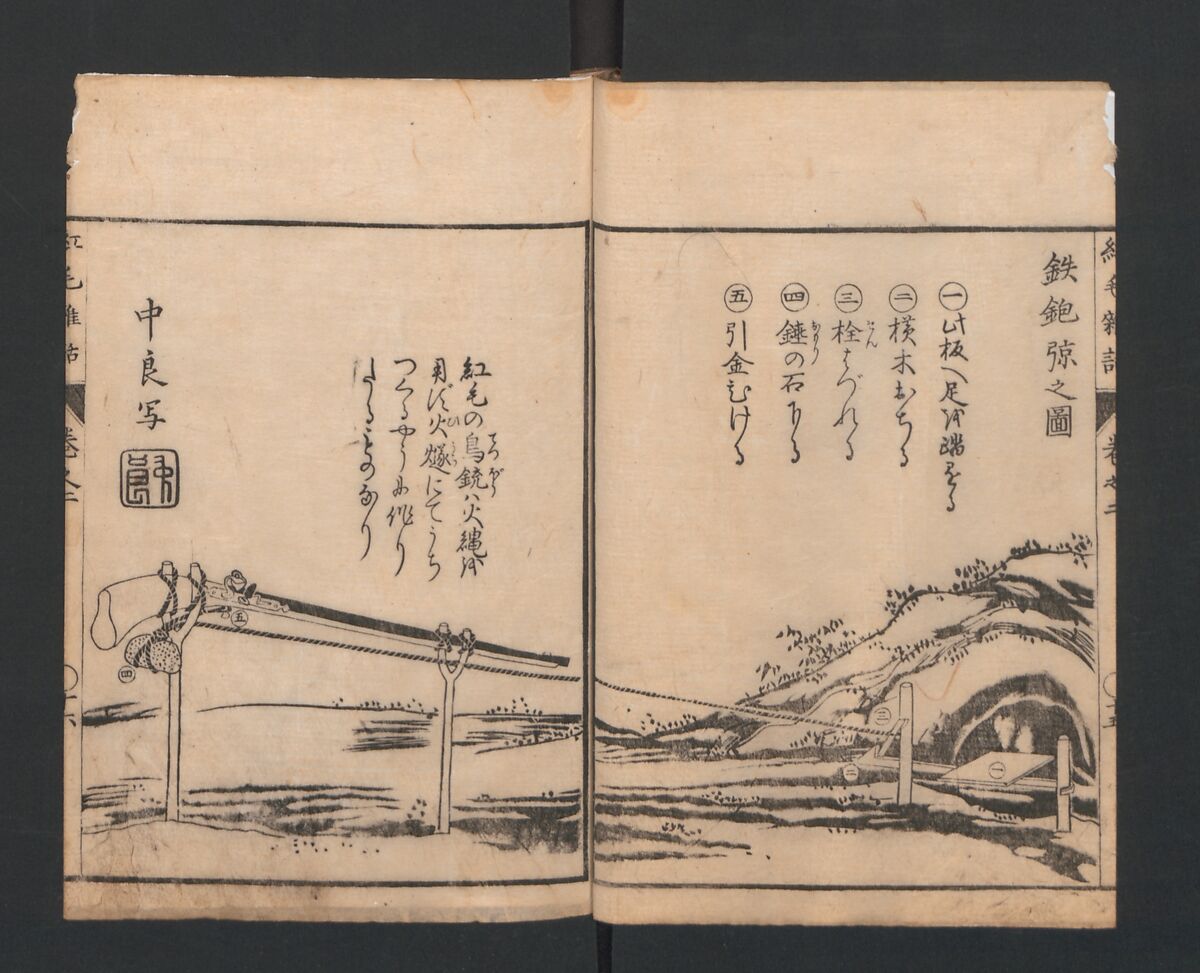 紅毛雜話 巻之二 〇十五
鉄鉋弶之圖
㊀此板へ足を踏
㊁横木おちる
㊂栓はづれる
㊃錘の石下る
㊄引金むける
紅毛の鳥銃ハ火縄を
用ず火燧にてうち
つくるやうに作り
たるものなり
中良写
紅毛雜話 巻之二 〇十六